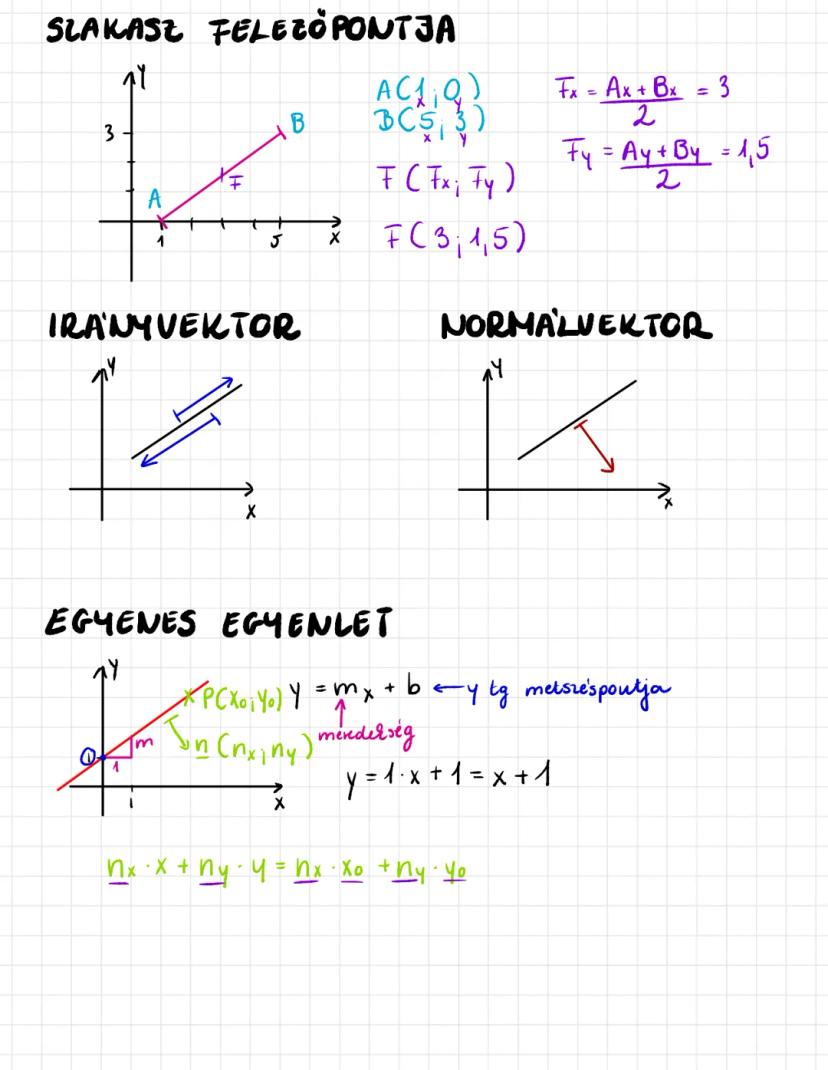 SZAKASZ FELEZŐPONTJA
Y
3
A
F
B
1
5
X
A(1;0)
x y
B(5;3)
x y
F(Fx;Fy)
F(3;1,5)
Fx = Ax + Bx / 2 = 3
Fy = Ay + By / 2 = 1,5
IRÁNYVEKTOR
Y
X
NORMÁLVEKTOR
Y
x
EGYENES EGYENLET
Y
P(x0;y0)
n(nx;ny)
m
1
1
1
X
y = mx + b ← y tg metszéspontja
meredekség
y = 1·x + 1 = x + 1
nx · x + ny · y = nx · x0 + ny · y0